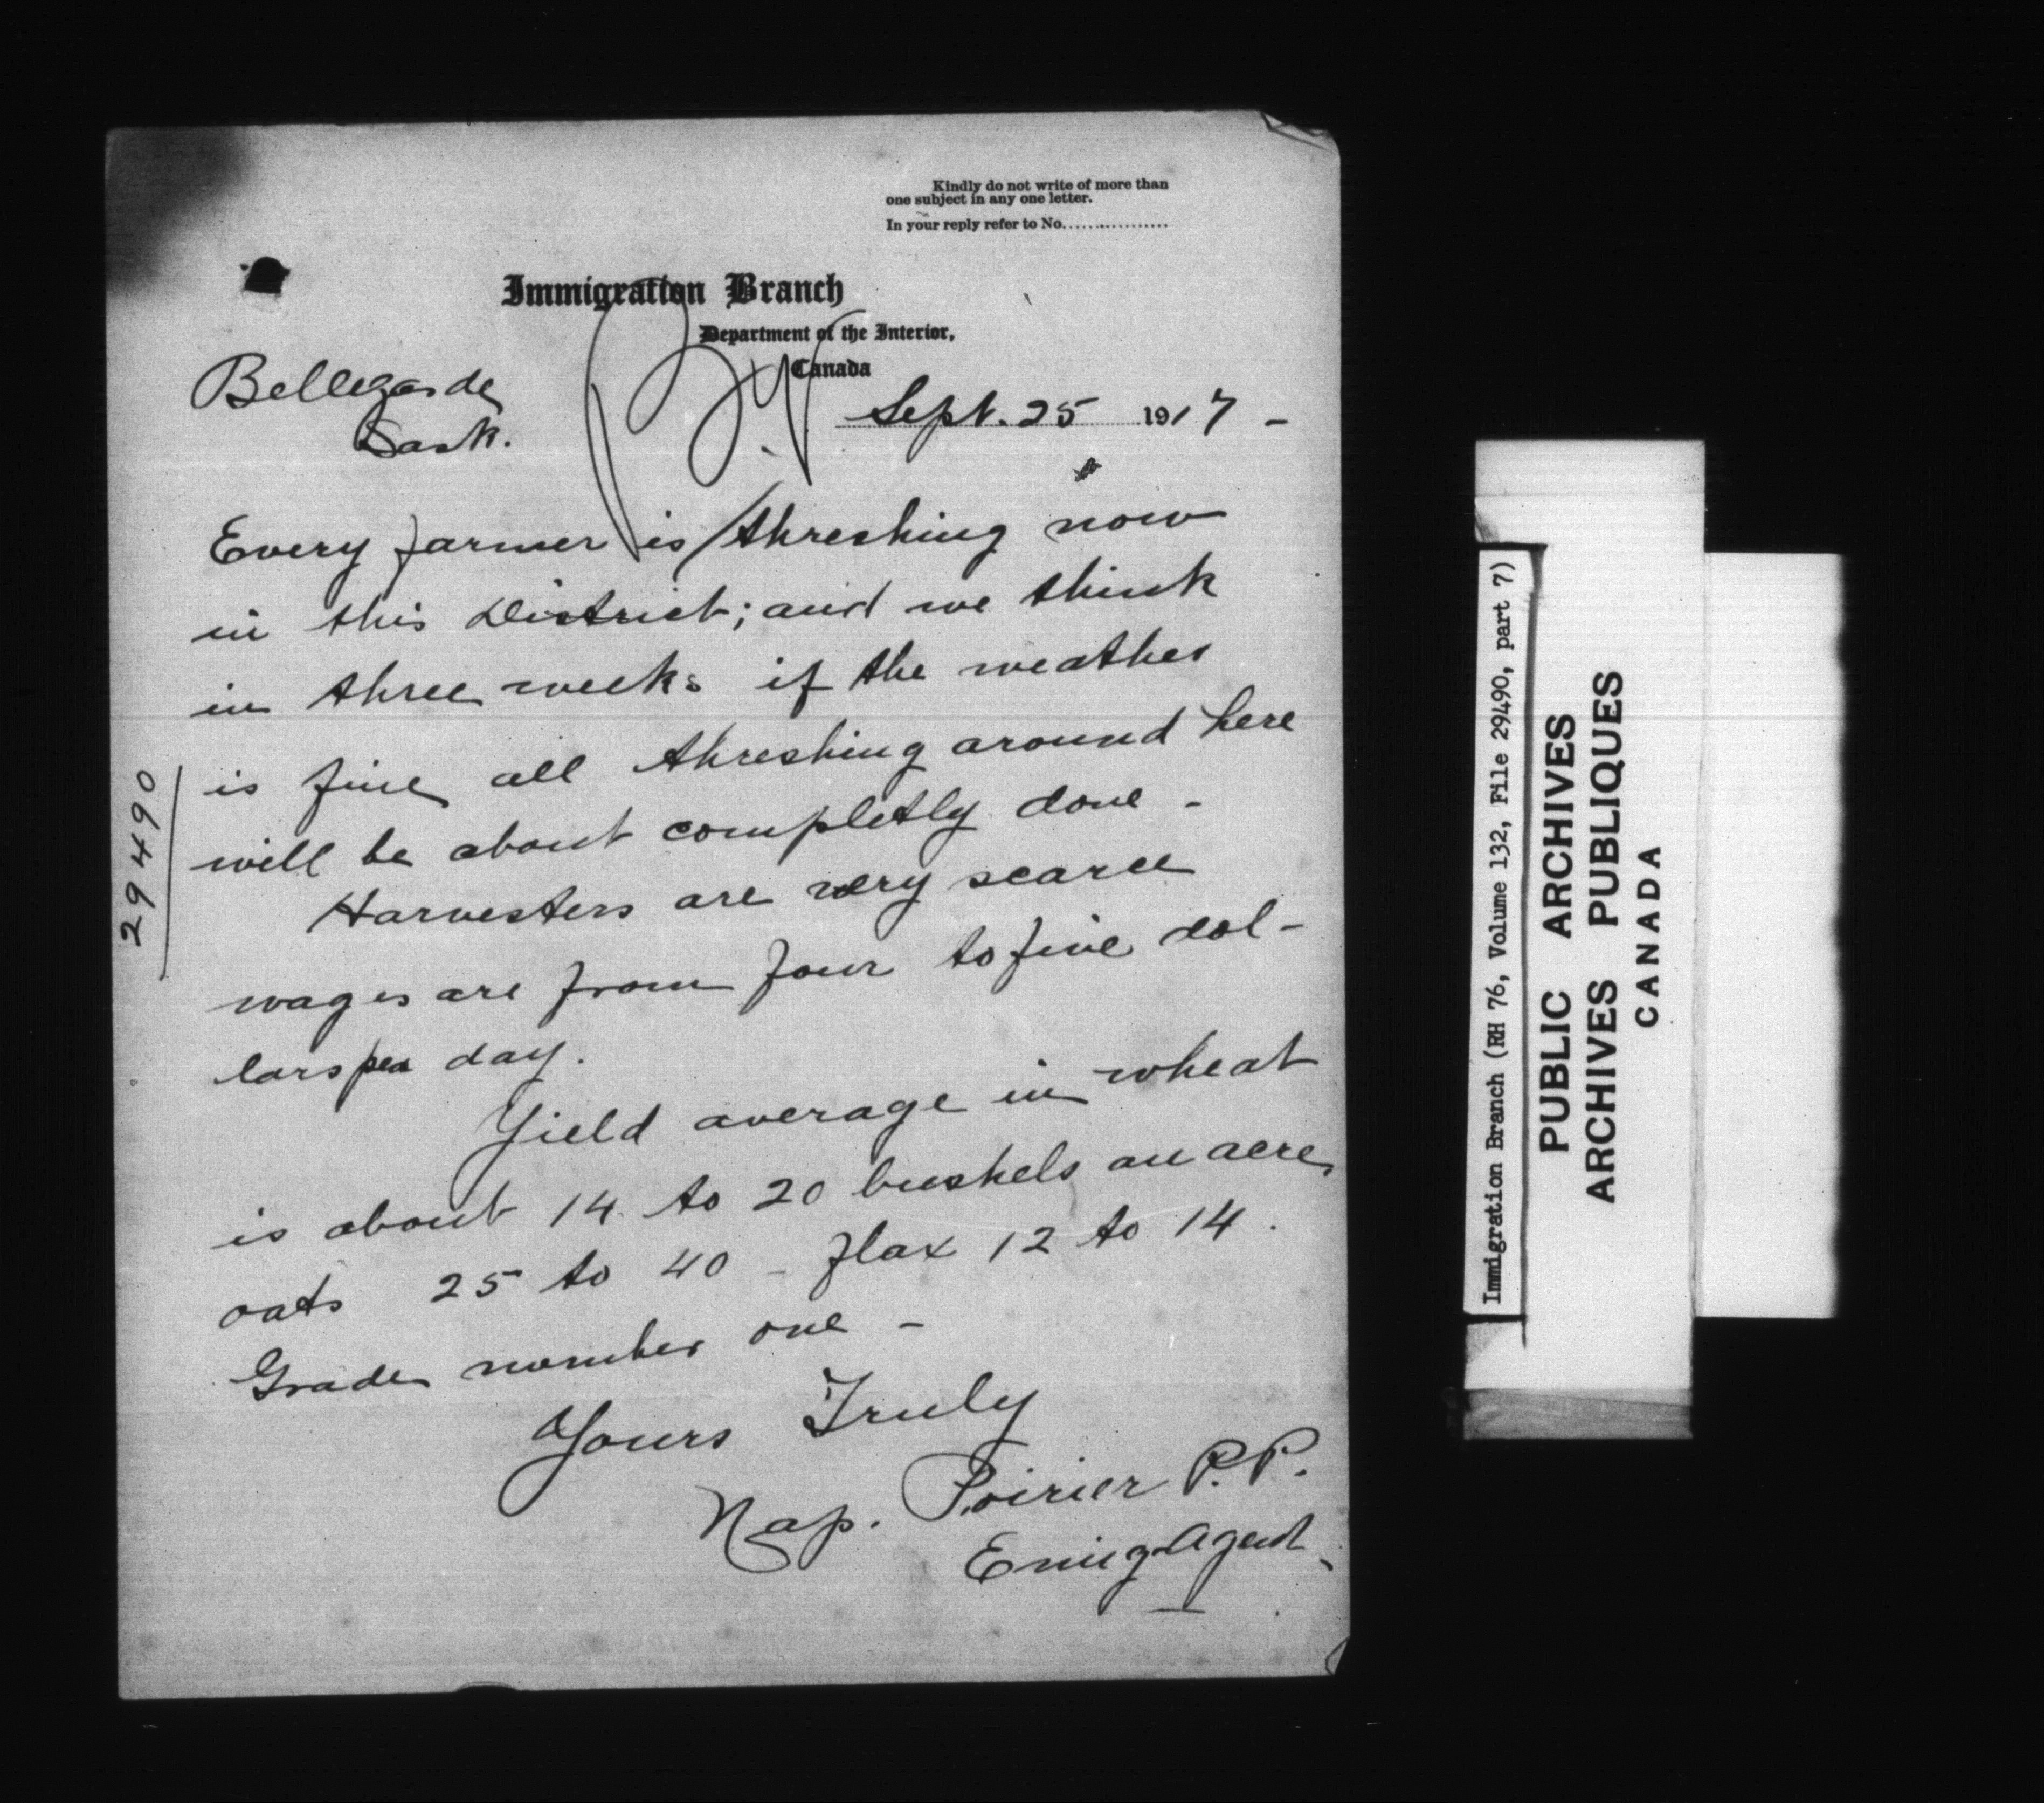 Kindly do not write of more than
one subject in any one letter.
In your reply refer to No.................
Immigration Branch
Department of the Interior,
Canada
Bellegarde
Sask.
Sept. 25 1917 -
Every farmer is threshing now
in this District; and we think
in three weeks if the weather
is fine all threshing around here
will be about completly done -
Harvesters are very scarce
wages are from four to five dol-
lars per day.
Yield average in wheat
is about 14 to 20 bushels an acre,
oats 25 to 40 - flax 12 to 14.
Grade number one -
Yours Truly
Nap. Poirier P.P.
Emig Agent
29490
Immigration Branch (RH 76, Volume 132, File 29490, part 7)
PUBLIC ARCHIVES
ARCHIVES PUBLIQUES
CANADA